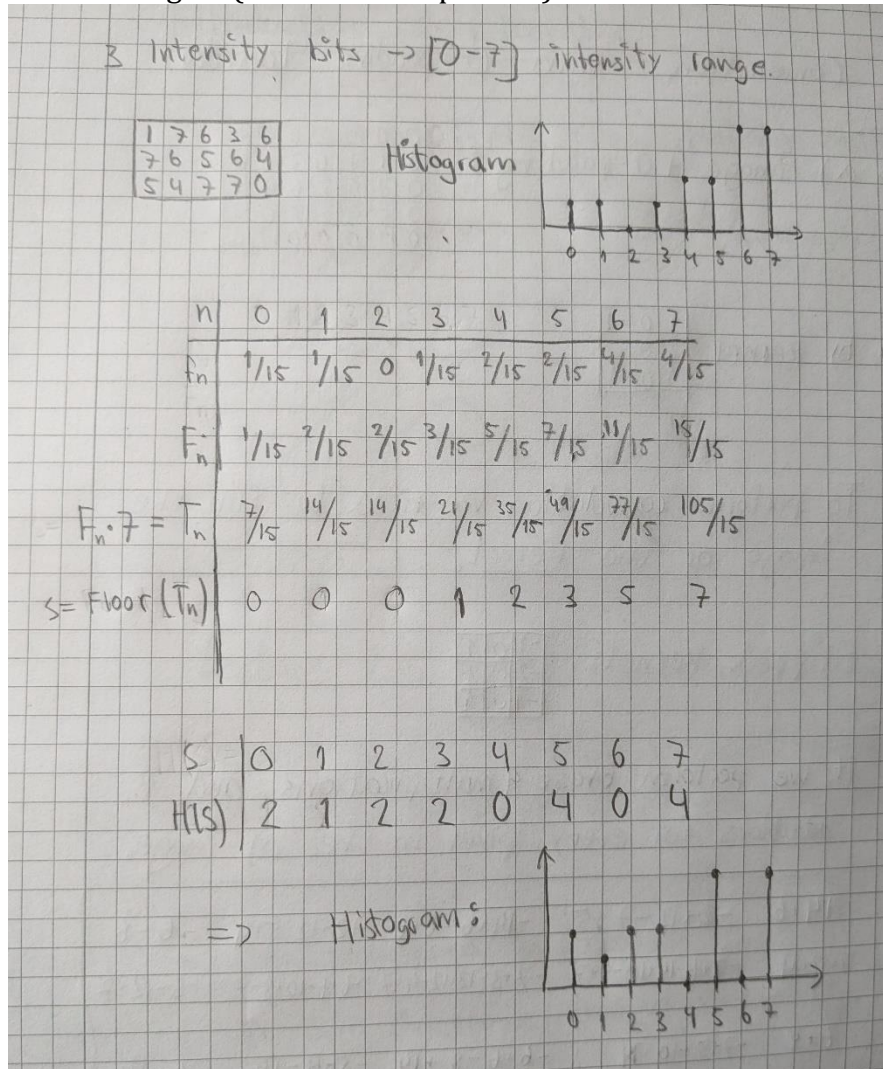 3 Intensity bits -> [0-7] intensity range.
1 7 6 3 6
7 6 5 6 4
5 4 7 7 0
Histogram
0 1 2 3 4 5 6 7
n 0 1 2 3 4 5 6 7
fn 1/15 1/15 0 1/15 2/15 2/15 4/15 4/15
Fn 1/15 2/15 2/15 3/15 5/15 7/15 11/15 15/15
Fn·7 = Tn 7/15 14/15 14/15 21/15 35/15 49/15 77/15 105/15
s= Floor(Tn) 0 0 0 1 2 3 5 7
S 0 1 2 3 4 5 6 7
H(S) 2 1 2 2 0 4 0 4
=> Histogram:
0 1 2 3 4 5 6 7